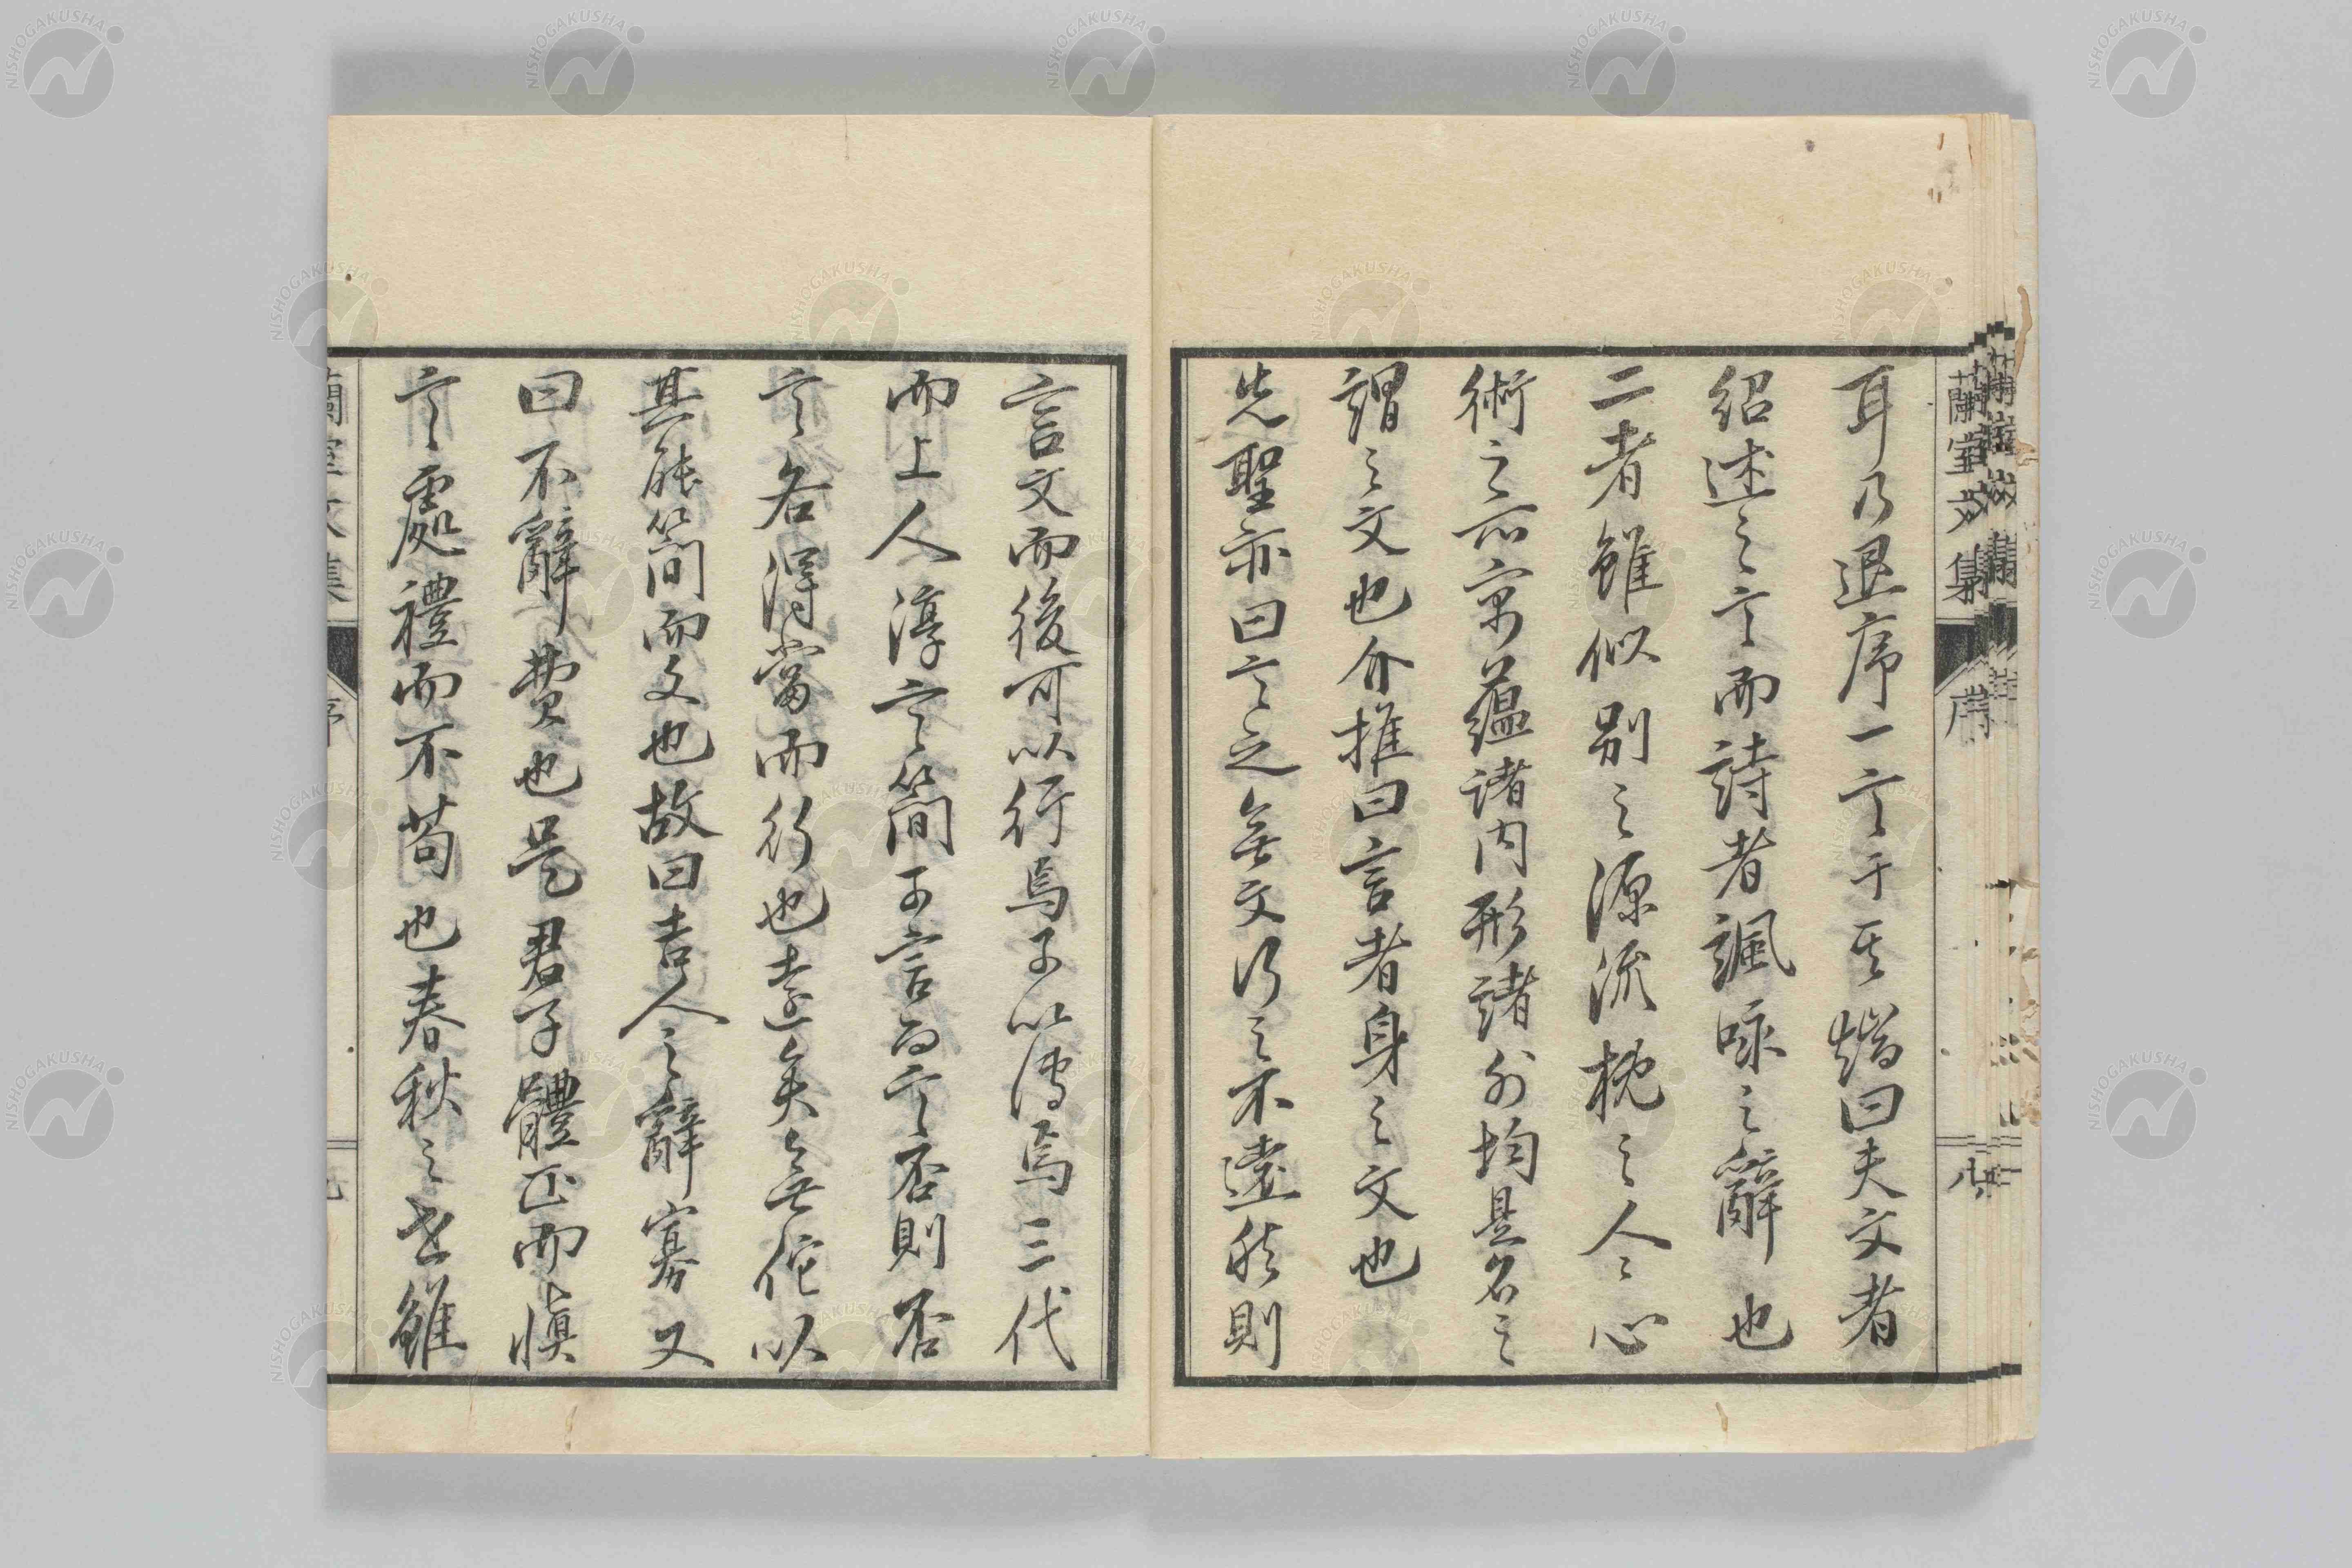 耳乃退序一言于其端曰夫文者
紹述之言而詩者諷咏之辭也
二者雖似別之源流枕之人心
術之所寓蘊諸内形諸外均是名之
謂之文也介推曰言者身之文也
先聖亦曰言之無文行之不遠然則
言文而後可以行焉可以傳焉三代
而上人淳言簡可言而言否則否
言各得當而行也遠矣無佗以
其能簡而文也故曰吉人之辭寡又
曰不辭費也是君子體正而愼
言處禮而不苟也春秋之世雖
蘭室文集
序
八
NISHOGAKUSHA